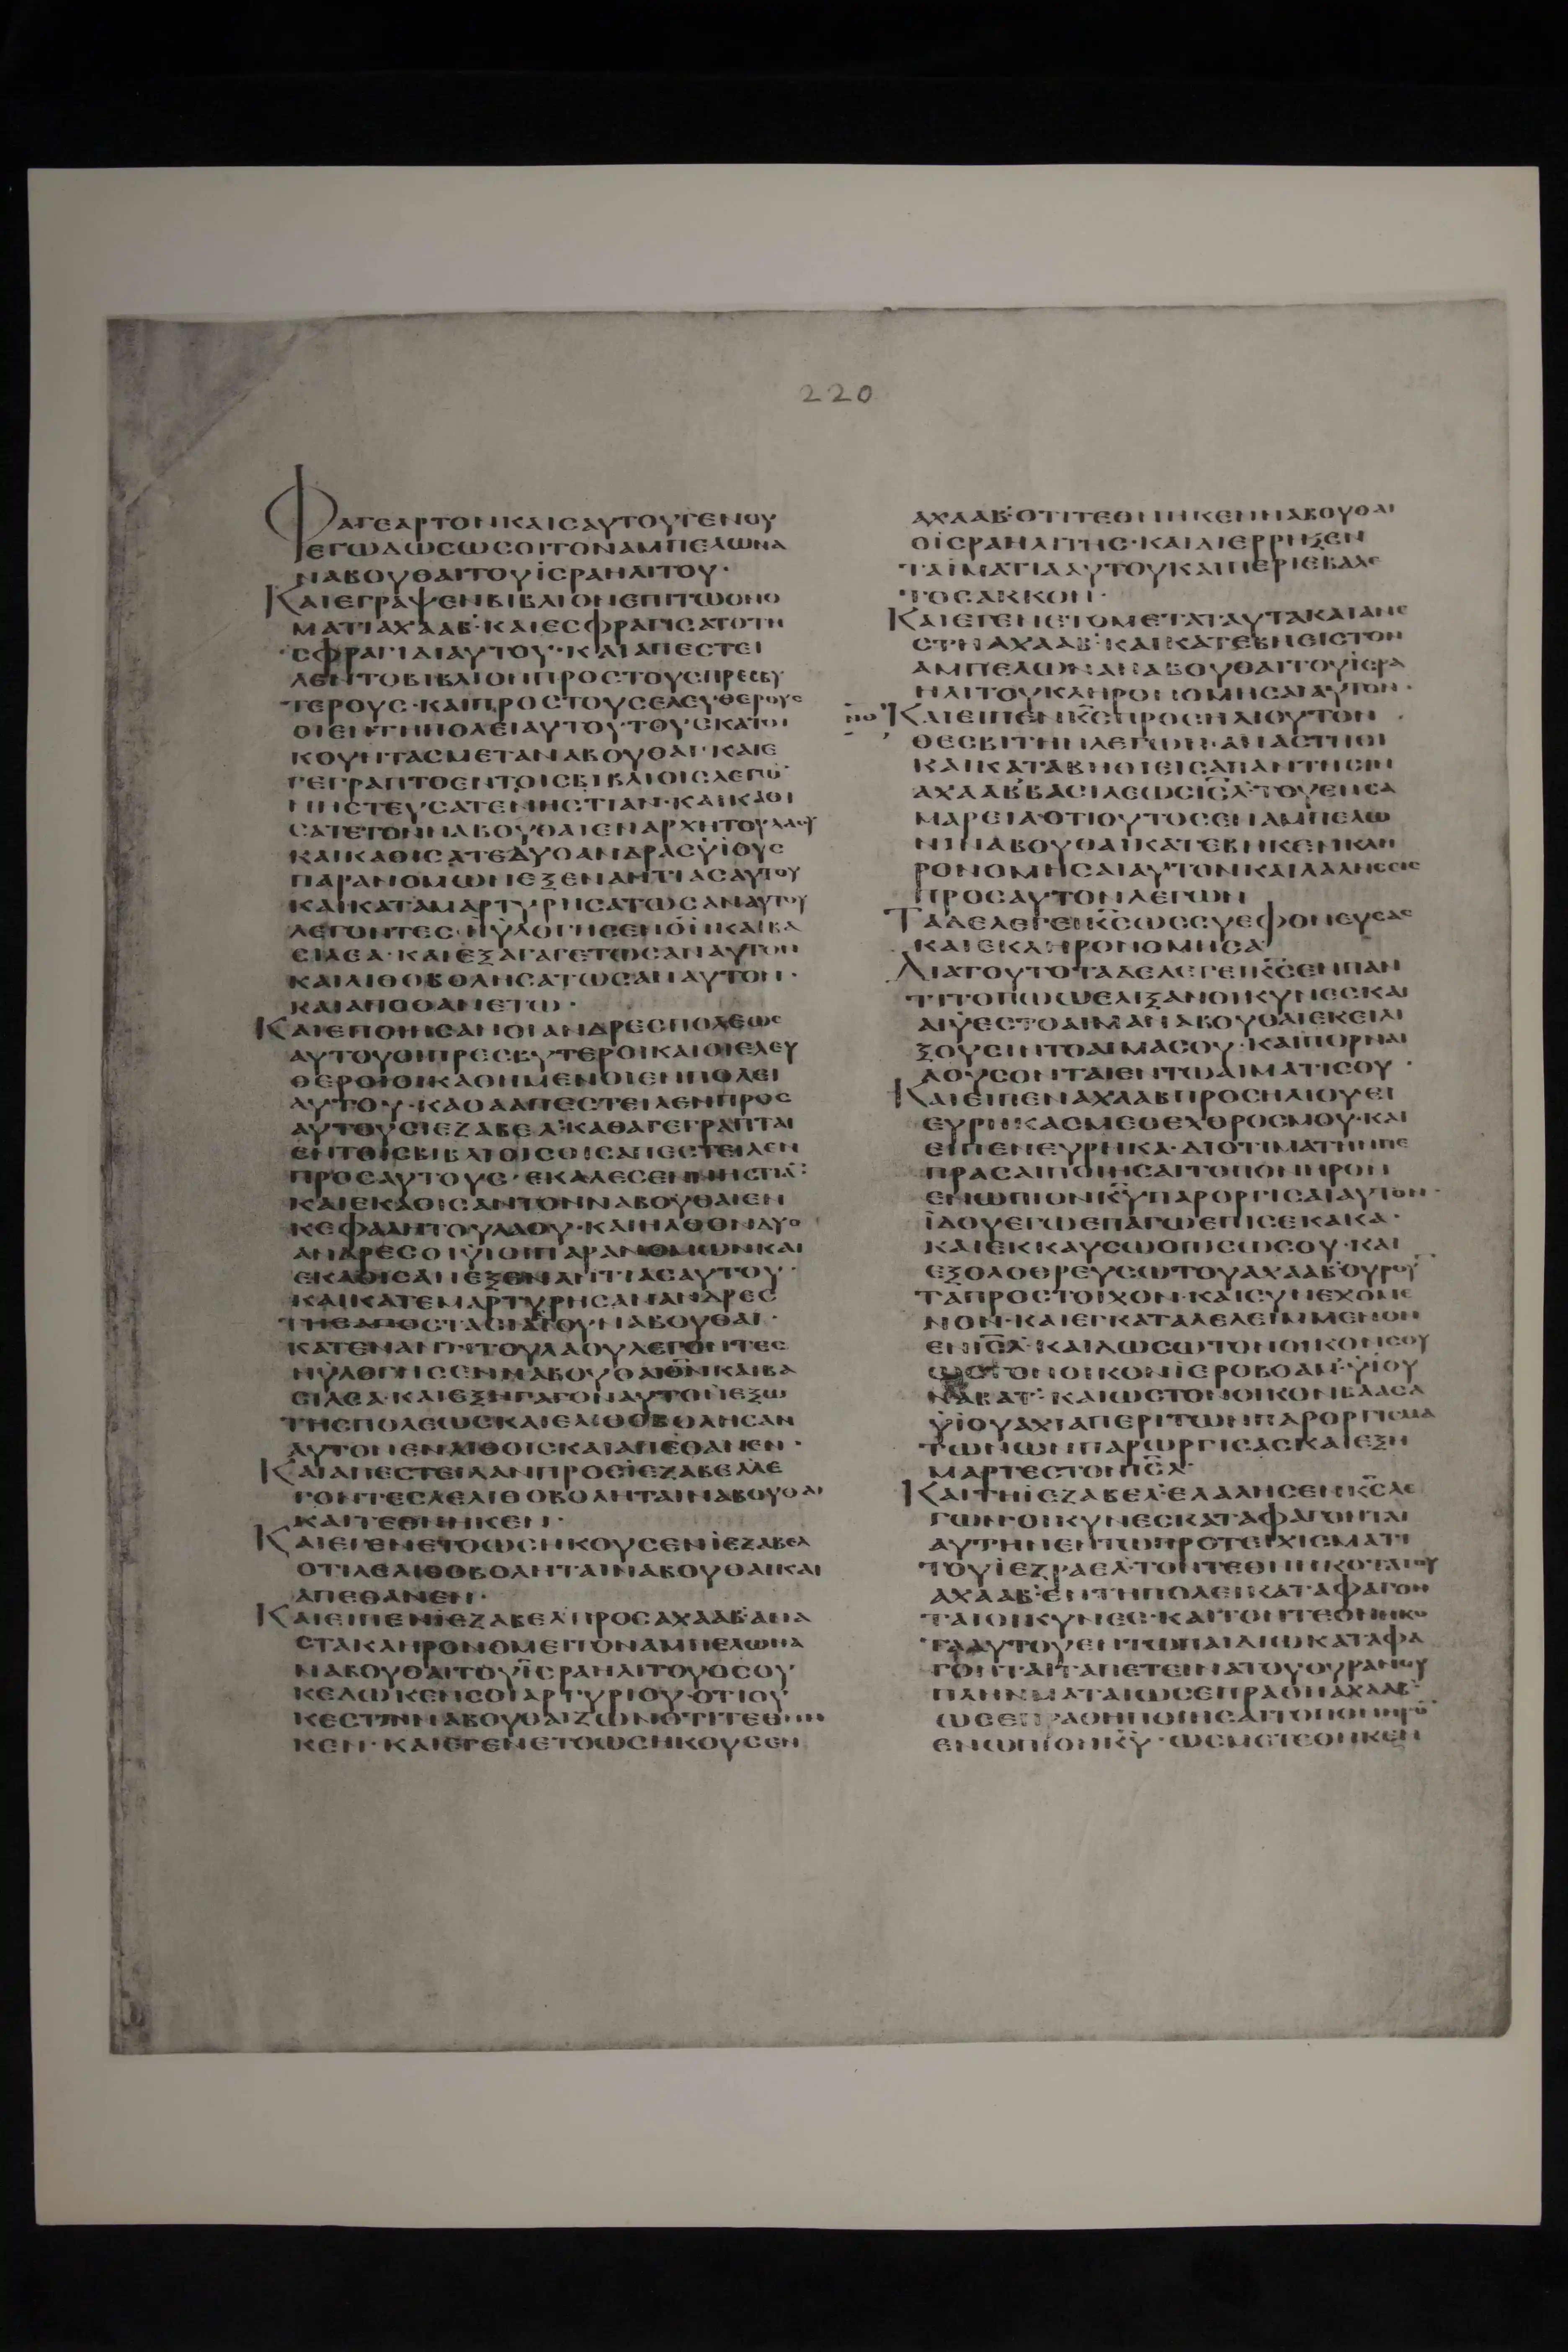 220
ΦΑΓΕΑΡΤΟΝΚΑΙΣΑΥΤΟΥΓΕΝΟΥ
ΕΓΩΔΩΣΩΣΟΙΤΟΝΑΜΠΕΛΩΝΑ
ΝΑΒΟΥΘΑΙΤΟΥΪΣΡΑΗΛΙΤΟΥ·
ΚΑΙΕΓΡΑΨΕΝΒΙΒΛΙΟΝΕΠΙΤΩΟΝΟ
ΜΑΤΙΑΧΑΑΒ·ΚΑΙΕΣΦΡΑΓΙΣΑΤΟΤΗ
ΣΦΡΑΓΙΔΙΑΥΤΟΥ·ΚΑΙΑΠΕΣΤΕΙ
ΛΕΝΤΟΒΙΒΛΙΟΝΠΡΟΣΤΟΥΣΠΡΕΣΒΥ
ΤΕΡΟΥΣ·ΚΑΙΠΡΟΣΤΟΥΣΕΛΕΥΘΕΡΟΥΣ
ΟΙΕΝΤΗΠΟΛΕΙΑΥΤΟΥ·ΤΟΥΣΚΑΤΟΙ
ΚΟΥΝΤΑΣΜΕΤΑΝΑΒΟΥΘΑΙ·ΚΑΙΕ
ΓΕΓΡΑΠΤΟΕΝΤΟΙΣΒΙΒΛΙΟΙΣΛΕΓΩ̄
ΝΗΣΤΕΥΣΑΤΕΝΗΣΤΙΑΝ·ΚΑΙΚΑΘΙ
ΣΑΤΕΤΟΝΝΑΒΟΥΘΑΙΕΝΑΡΧΗΤΟΥΛΑΟΥ
ΚΑΙΚΑΘΙΣΑΤΕΔΥΟΑΝΔΡΑΣΫΪΟΥΣ
ΠΑΡΑΝΟΜΩΝΕΞΕΝΑΝΤΙΑΣΑΥΤΟΥ
ΚΑΙΚΑΤΑΜΑΡΤΥΡΗΣΑΤΩΣΑΝΑΥΤΟΥ
ΛΕΓΟΝΤΕΣ·ΗΥΛΟΓΗΣΕΝΘ̄Ν̄ΚΑΙΒΑ
ΣΙΛΕΑ·ΚΑΙΕΞΑΓΑΓΕΤΩΣΑΝΑΥΤΟΝ
ΚΑΙΛΙΘΟΒΟΛΗΣΑΤΩΣΑΝΑΥΤΟΝ·
ΚΑΙΑΠΟΘΑΝΕΤΩ·
ΚΑΙΕΠΟΙΗΣΑΝΟΙΑΝΔΡΕΣΠΟΛΕΩΣ
ΑΥΤΟΥΟΙΠΡΕΣΒΥΤΕΡΟΙΚΑΙΟΙΕΛΕΥ
ΘΕΡΟΙΟΙΚΑΘΗΜΕΝΟΙΕΝΠΟΛΕΙ
ΑΥΤΟΥ·ΚΑΘΑΑΠΕΣΤΕΙΛΕΝΠΡΟΣ
ΑΥΤΟΥΣΙΕΖΑΒΕΛ·ΚΑΘΑΓΕΓΡΑΠΤΑΙ
ΕΝΤΟΙΣΒΙΒΛΙΟΙΣΟΙΣΑΠΕΣΤΕΙΛΕΝ
ΠΡΟΣΑΥΤΟΥΣ·ΕΚΑΛΕΣΕΝΝΗΣΤΙᾹ·
ΚΑΙΕΚΑΘΙΣΑΝΤΟΝΝΑΒΟΥΘΑΙΕΝ
ΚΕΦΑΛΗΤΟΥΛΑΟΥ·ΚΑΙΗΛΘΟΝΔΥΟ
ΑΝΔΡΕΣΟΙΫΙΟΙΠΑΡΑΝΟΜΩΝΚΑΙ
ΕΚΑΘΙΣΑΝΕΞΕΝΑΝΤΙΑΣΑΥΤΟΥ·
ΚΑΙΚΑΤΕΜΑΡΤΥΡΗΣΑΝΑΝΔΡΕΣ
ΤΗΣΑΠΟΣΤΑΣΙΑΣΤΟΥΝΑΒΟΥΘΑΙ·
ΚΑΤΕΝΑΝΤΙΤΟΥΛΑΟΥΛΕΓΟΝΤΕΣ
ΗΥΛΟΓΗΣΕΝΝΑΒΟΥΘΑΙΘ̄Ν̄ΚΑΙΒΑ
ΣΙΛΕΑ·ΚΑΙΕΞΗΓΑΓΟΝΑΥΤΟΝΕΞΩ
ΤΗΣΠΟΛΕΩΣΚΑΙΕΛΙΘΟΒΟΛΗΣΑΝ
ΑΥΤΟΝΕΝΛΙΘΟΙΣΚΑΙΑΠΕΘΑΝΕΝ·
ΚΑΙΑΠΕΣΤΕΙΛΑΝΠΡΟΣΪΕΖΑΒΕΛΛΕ
ΓΟΝΤΕΣΛΕΛΙΘΟΒΟΛΗΤΑΙΝΑΒΟΥΘΑΙ
ΚΑΙΤΕΘΝΗΚΕΝ·
ΚΑΙΕΓΕΝΕΤΟΩΣΗΚΟΥΣΕΝΪΕΖΑΒΕΛ
ΟΤΙΛΕΛΙΘΟΒΟΛΗΤΑΙΝΑΒΟΥΘΑΙΚΑΙ
ΑΠΕΘΑΝΕΝ·
ΚΑΙΕΙΠΕΝΪΕΖΑΒΕΛΠΡΟΣΑΧΑΑΒ·ΑΝΑ
ΣΤΑΚΛΗΡΟΝΟΜΕΙΤΟΝΑΜΠΕΛΩΝΑ
ΝΑΒΟΥΘΑΙΤΟΥΪΣΡΑΗΛΙΤΟΥΟΣΟΥ
ΚΕΔΩΚΕΝΣΟΙΑΡΓΥΡΙΟΥ·ΟΤΙΟΥ
ΚΕΣΤΙΝΝΑΒΟΥΘΑΙΖΩΝΟΤΙΤΕΘΝΗ
ΚΕΝ·ΚΑΙΕΓΕΝΕΤΟΩΣΗΚΟΥΣΕΝ
ΑΧΑΑΒ·ΟΤΙΤΕΘΝΗΚΕΝΝΑΒΟΥΘΑΙ
ΟΪΣΡΑΗΛΙΤΗΣ·ΚΑΙΔΙΕΡΡΗΞΕΝ
ΤΑΪΜΑΤΙΑΑΥΤΟΥΚΑΙΠΕΡΙΕΒΑΛΕ
ΤΟΣΑΚΚΟΝ·
ΚΑΙΕΓΕΝΕΤΟΜΕΤΑΤΑΥΤΑΚΑΙΑΝΕ
ΣΤΗΑΧΑΑΒ·ΚΑΙΚΑΤΕΒΗΕΙΣΤΟΝ
ΑΜΠΕΛΩΝΑΝΑΒΟΥΘΑΙΤΟΥΪΣΡΑ
ΗΛΙΤΟΥΚΛΗΡΟΝΟΜΗΣΑΙΑΥΤΟΝ·
ΚΑΙΕΙΠΕΝΚ̄Σ̄ΠΡΟΣΗΛΙΟΥΤΟΝ
ΘΕΣΒΙΤΗΝΛΕΓΩΝ·ΑΝΑΣΤΗΘΙ
ΚΑΙΚΑΤΑΒΗΘΙΕΙΣΑΠΑΝΤΗΣΙΝ
ΑΧΑΑΒΒΑΣΙΛΕΩΣῙΣ̄Λ̄·ΤΟΥΕΝΣΑ
ΜΑΡΕΙΑ·ΟΤΙΟΥΤΟΣΕΝΑΜΠΕΛΩ
ΝΙΝΑΒΟΥΘΑΙΚΑΤΕΒΗΚΕΝΚΛΗ
ΡΟΝΟΜΗΣΑΙΑΥΤΟΝΚΑΙΛΑΛΗΣΕΙΣ
ΠΡΟΣΑΥΤΟΝΛΕΓΩΝ
ΤΑΔΕΛΕΓΕΙΚ̄Σ̄ΩΣΣΥΕΦΟΝΕΥΣΑΣ
ΚΑΙΕΚΛΗΡΟΝΟΜΗΣΑ
ΔΙΑΤΟΥΤΟΤΑΔΕΛΕΓΕΙΚ̄Σ̄ΕΝΠΑΝ
ΤΙΤΟΠΩΩΕΛΙΞΑΝΟΙΚΥΝΕΣΚΑΙ
ΑΙΫΕΣΤΟΑΙΜΑΝΑΒΟΥΘΑΙΕΚΕΙΛΙ
ΞΟΥΣΙΝΤΟΑΙΜΑΣΟΥ·ΚΑΙΠΟΡΝΑΙ
ΛΟΥΣΟΝΤΑΙΕΝΤΩΑΙΜΑΤΙΣΟΥ·
ΚΑΙΕΙΠΕΝΑΧΑΑΒΠΡΟΣΗΛΙΟΥΕΙ
ΕΥΡΗΚΑΣΜΕΟΕΧΘΡΟΣΜΟΥ·ΚΑΙ
ΕΙΠΕΝΕΥΡΗΚΑ·ΔΙΟΤΙΜΑΤΗΝΠΕ
ΠΡΑΣΑΙΠΟΙΗΣΑΙΤΟΠΟΝΗΡΟΝ
ΕΝΩΠΙΟΝΚ̄ῩΠΑΡΟΡΓΙΣΑΙΑΥΤΟΝ·
ΪΔΟΥΕΓΩΕΠΑΓΩΕΠΙΣΕΚΑΚΑ·
ΚΑΙΕΚΚΑΥΣΩΟΠΙΣΩΣΟΥ·ΚΑΙ
ΕΞΟΛΟΘΡΕΥΣΩΤΟΥΑΧΑΑΒ·ΟΥΡΟῩ
ΤΑΠΡΟΣΤΟΙΧΟΝ·ΚΑΙΣΥΝΕΧΟΜΕ
ΝΟΝ·ΚΑΙΕΓΚΑΤΑΛΕΛΕΙΜΜΕΝΟΝ
ΕΝῙΣ̄Λ̄·ΚΑΙΔΩΣΩΤΟΝΟΙΚΟΝΣΟΥ
ΩΣΤΟΝΟΙΚΟΝΪΕΡΟΒΟΑΜ·ΫΪΟΥ
ΝΑΒΑΤ·ΚΑΙΩΣΤΟΝΟΙΚΟΝΒΑΑΣΑ
ΫΪΟΥΑΧΙΑΠΕΡΙΤΩΝΠΑΡΟΡΓΙΣΜΑ
ΤΩΝΩΝΠΑΡΩΡΓΙΣΑΣΚΑΙΕΞΗ
ΜΑΡΤΕΣΤΟΝῙΣ̄Λ̄·
ΚΑΙΤΗΪΕΖΑΒΕΛ·ΕΛΑΛΗΣΕΝΚ̄Σ̄ΛΕ
ΓΩΝ·ΟΙΚΥΝΕΣΚΑΤΑΦΑΓΟΝΤΑΙ
ΑΥΤΗΝΕΝΤΩΠΡΟΤΕΙΧΙΣΜΑΤΙ
ΤΟΥΪΕΖΡΑΕΛ·ΤΟΝΤΕΘΝΗΚΟΤΑΤΟΥ
ΑΧΑΑΒ·ΕΝΤΗΠΟΛΕΙΚΑΤΑΦΑΓΟΝ
ΤΑΙΟΙΚΥΝΕΣ·ΚΑΙΤΟΝΤΕΘΝΗΚΟ
ΤΑΑΥΤΟΥΕΝΤΩΠΑΙΔΙΩΚΑΤΑΦΑ
ΓΟΝΤΑΙΤΑΠΕΤΕΙΝΑΤΟΥΟΥΡΑΝΟΥ
ΠΛΗΝΜΑΤΑΙΩΣΕΠΡΑΘΗΑΧΑΑΒ·
ΩΣΕΠΡΑΘΗΠΟΙΗΣΑΙΤΟΠΟΝΗΡΟ̄
ΕΝΩΠΙΟΝΚ̄Ῡ·ΩΣΜΕΤΕΘΗΚΕΝ